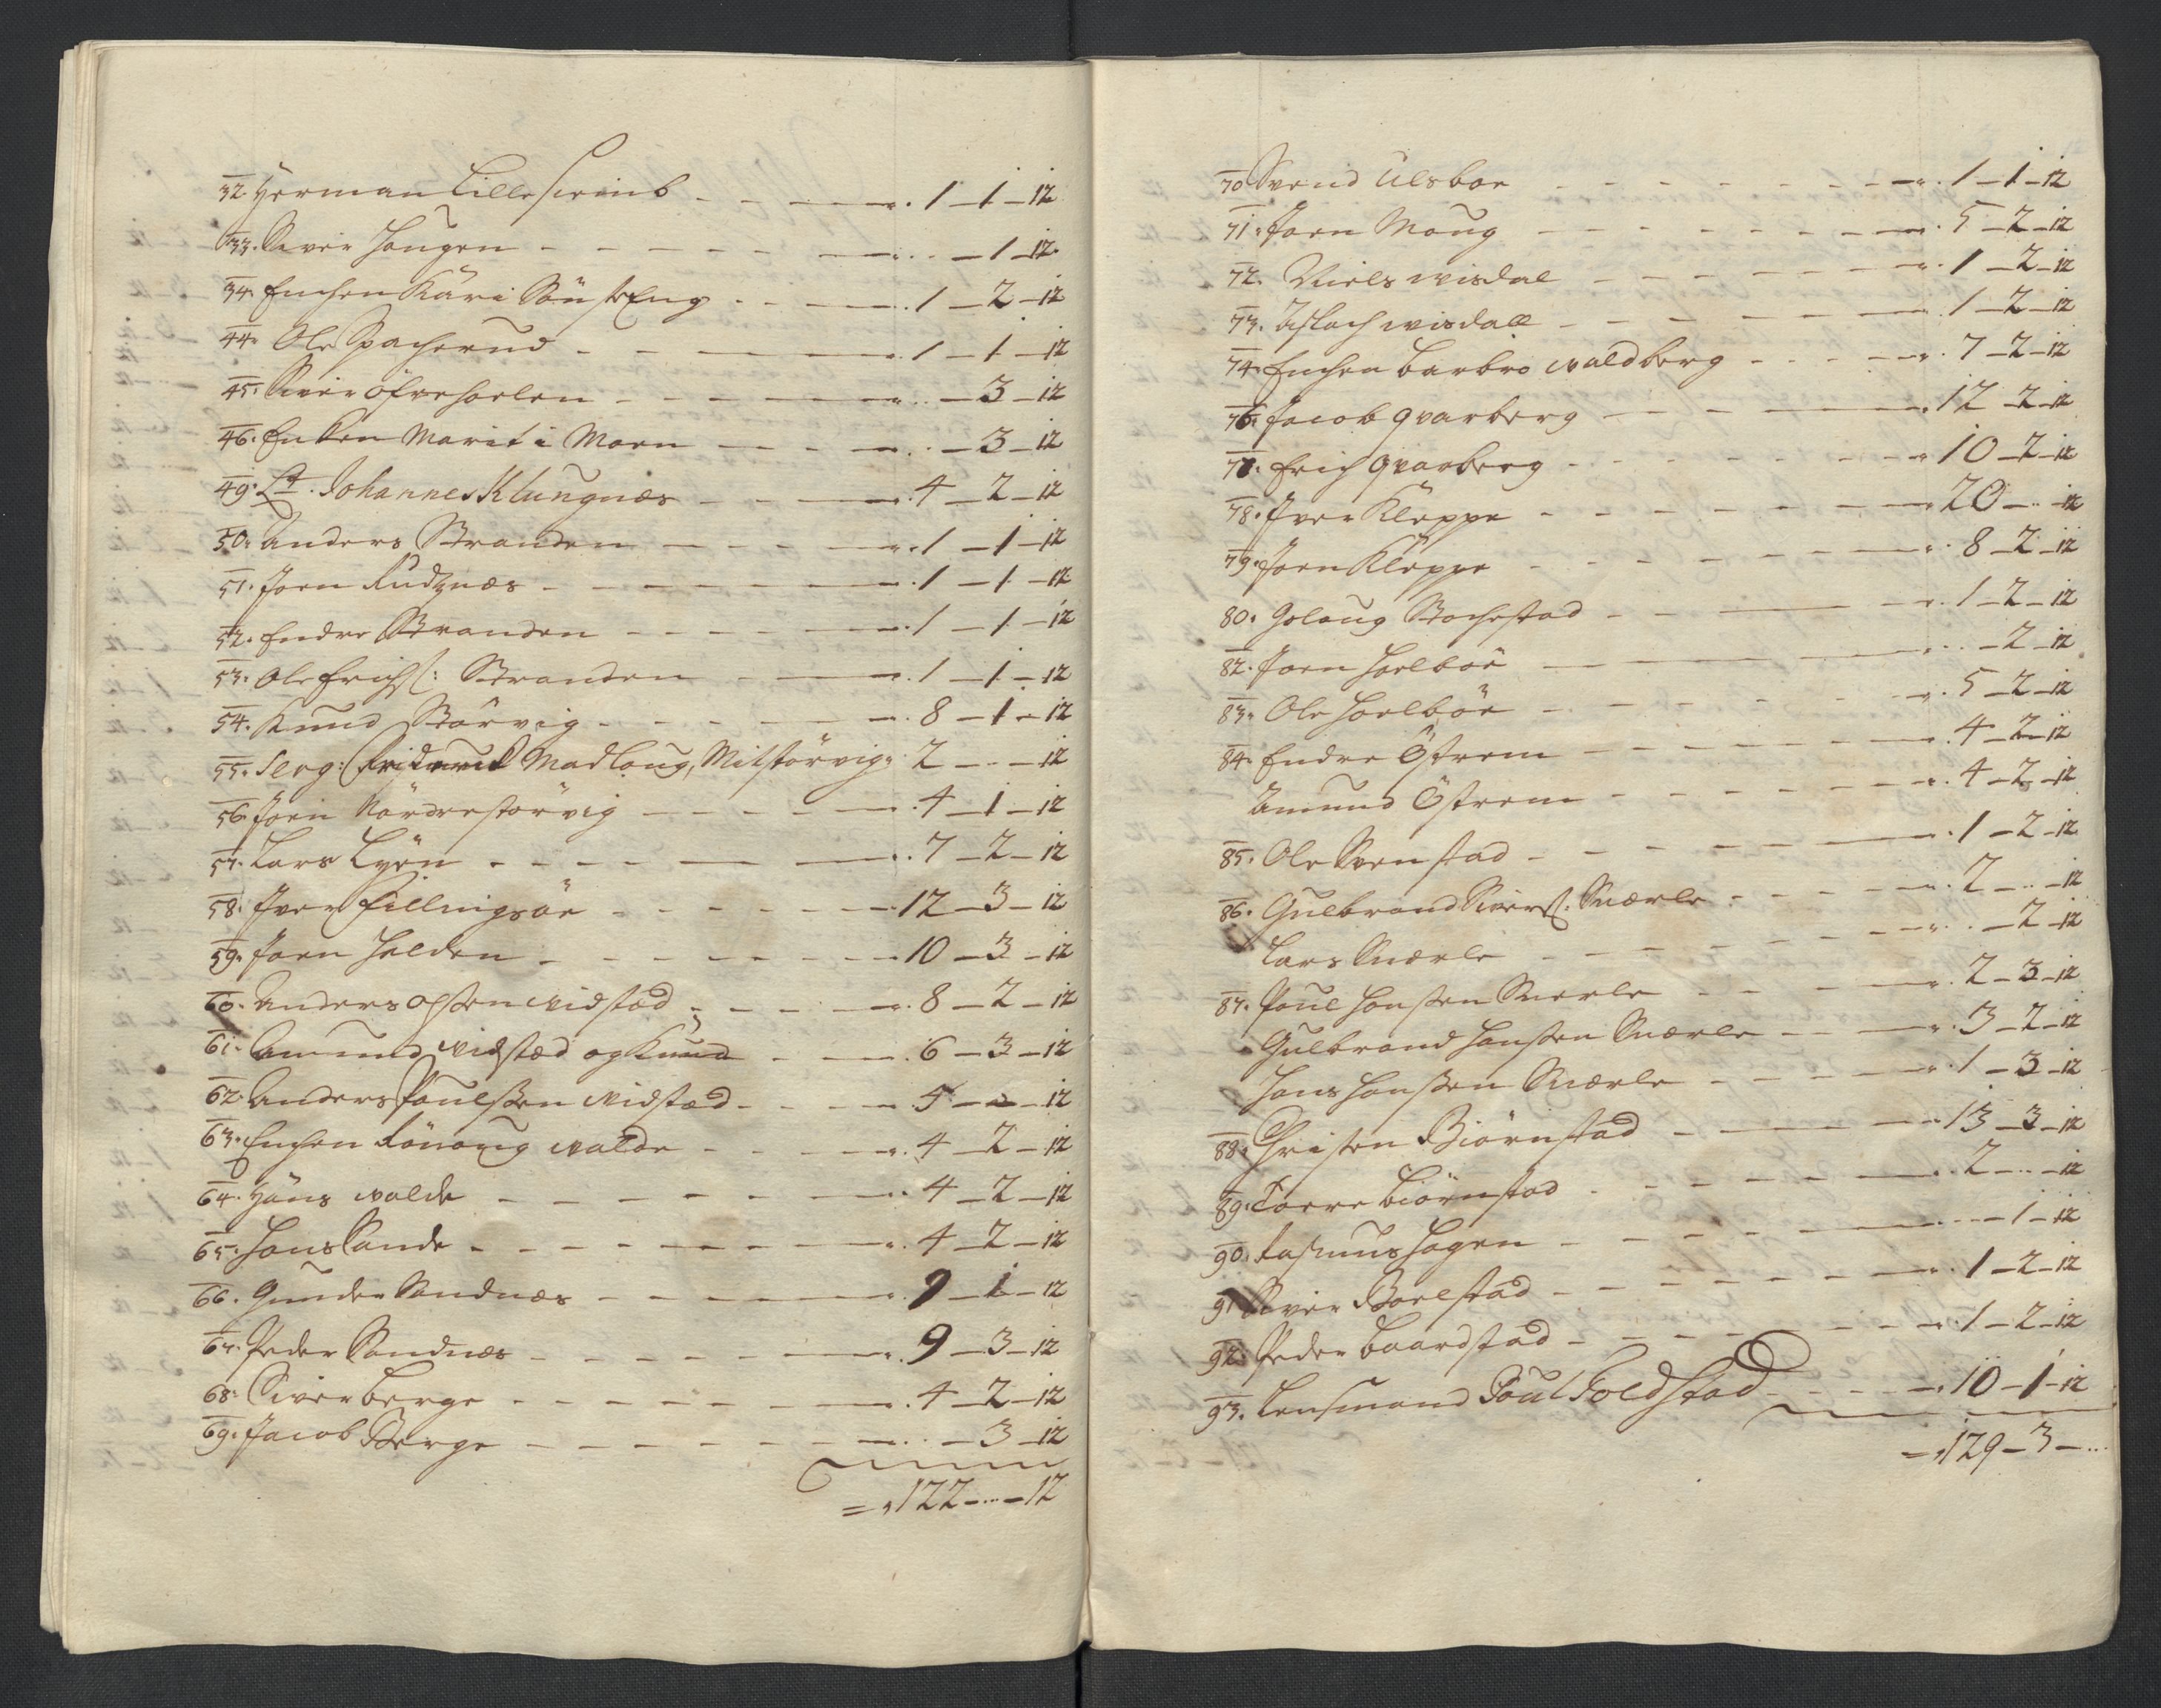 32. Herman Lille Sveinb – – – 1 – 1 – 12
33. Siver Haugen – – – – – – – 1 – 12
34. Enchen Kari Sønste Eng – – – 1 – 2 – 12
44. Ole Spacherud – – – – 1 – 1 – 12
45. Siver öfrehoelen – – – – – 3 – 12
46. Encken Marit i Moen – – – – 3 – 12
49. Lt. Johannes Klungnæs – – – 4 – 2 – 12
50. Anders Stranden – – – 1 – 1 – 12
51. Joen Rudznæs – – – – 1 – 1 – 12
52. Endre Stranden – – – – 1 – 1 – 12
53. Ole Erichs: Stranden – – – 1 – 1 – 12
54. Knud Störvig – – – – – 8 – 1 – 12
55. Serg: Friderich Madlaug, Mitstörvig 2 – .. – 12
56. Joen Nördrestörvig – – – – 4 – 1 – 12
57. Lars Lyen – – – – – 7 – 2 – 12
58. Iver Fillingsöe – – – – – 12 – 3 – 12
59. Joen Helden – – – – – – 10 – 3 – 12
60. Anders Olssen Widstad – – – 8 – 2 – 12
61. Amund Widstad og Knud – – – 6 – 3 – 12
62. Anders Poulssen Widstad – – – 5 – 2 – 12
63. Enchen Rönnoug Walde – – – 4 – 2 – 12
64. Hans Walde – – – – – – 4 – 2 – 12
65. Hans Sande – – – – – – 4 – 2 – 12
66. Gunder Sandnæs – – – – 9 – 1 – 12
67. Peder Sandnæs – – – – – 9 – 3 – 12
68. Siver Berge – – – – – – 4 – 2 – 12
69. Jacob Berge – – – – – – – 3 – 12
= 122 – .. – 12
70. Svend Ulsboe – – – – – – 1 – 1 – 12
71. Joen Moug – – – – – – 5 – 2 – 12
72. Niels Wisdal – – – – – 1 – 2 – 12
73. Aslach Wisdall – – – – – 1 – 2 – 12
74. Enchen Barbro Waldberg – – – 7 – 2 – 12
76. Jacob Qvarberg – – – – 12 – 2 – 12
77. Erich Qvarberg – – – – – 10 – 2 – 12
78. Iver Kleppe – – – – – – 20 – .. – 12
79. Joen Kleppe – – – – – – 8 – 2 – 12
80. Golaug Stochstad – – – – 1 – 2 – 12
82. Joen Hoelböe – – – – – 2 – 12
83. Ole Hoelböe – – – – – – 5 – 2 – 12
84. Endre Östrem – – – – – 4 – 2 – 12
Amund Östrem – – – – – – 4 – 2 – 12
85. Ole Svenstad – – – – – 1 – 2 – 12
86. Gulbrand Sivers: Snærle – – – – 2 – .. – 12
Lars Snærle – – – – – – – 2 – 12
87. Poul Hanssen Snerle – – – – 2 – 3 – 12
Gulbrand Hanssen Snærle – – – 3 – 2 – 12
Hans Hanssen Snærle – – – – 1 – 3 – 12
88. Christen Biörnstad – – – – 13 – 3 – 12
89. Tore Biörnstad – – – – – 2 – .. – 12
90. Rasmus Hagen – – – – – – 1 – 12
91. Siver Boelstad – – – – – 1 – 2 – 12
92. Peder Baardstad – – – – – 1 – 2 – 12
93. Lensmand Poul Foldstad – – – 10 – 1 – 12
= 129 – 3 – ...